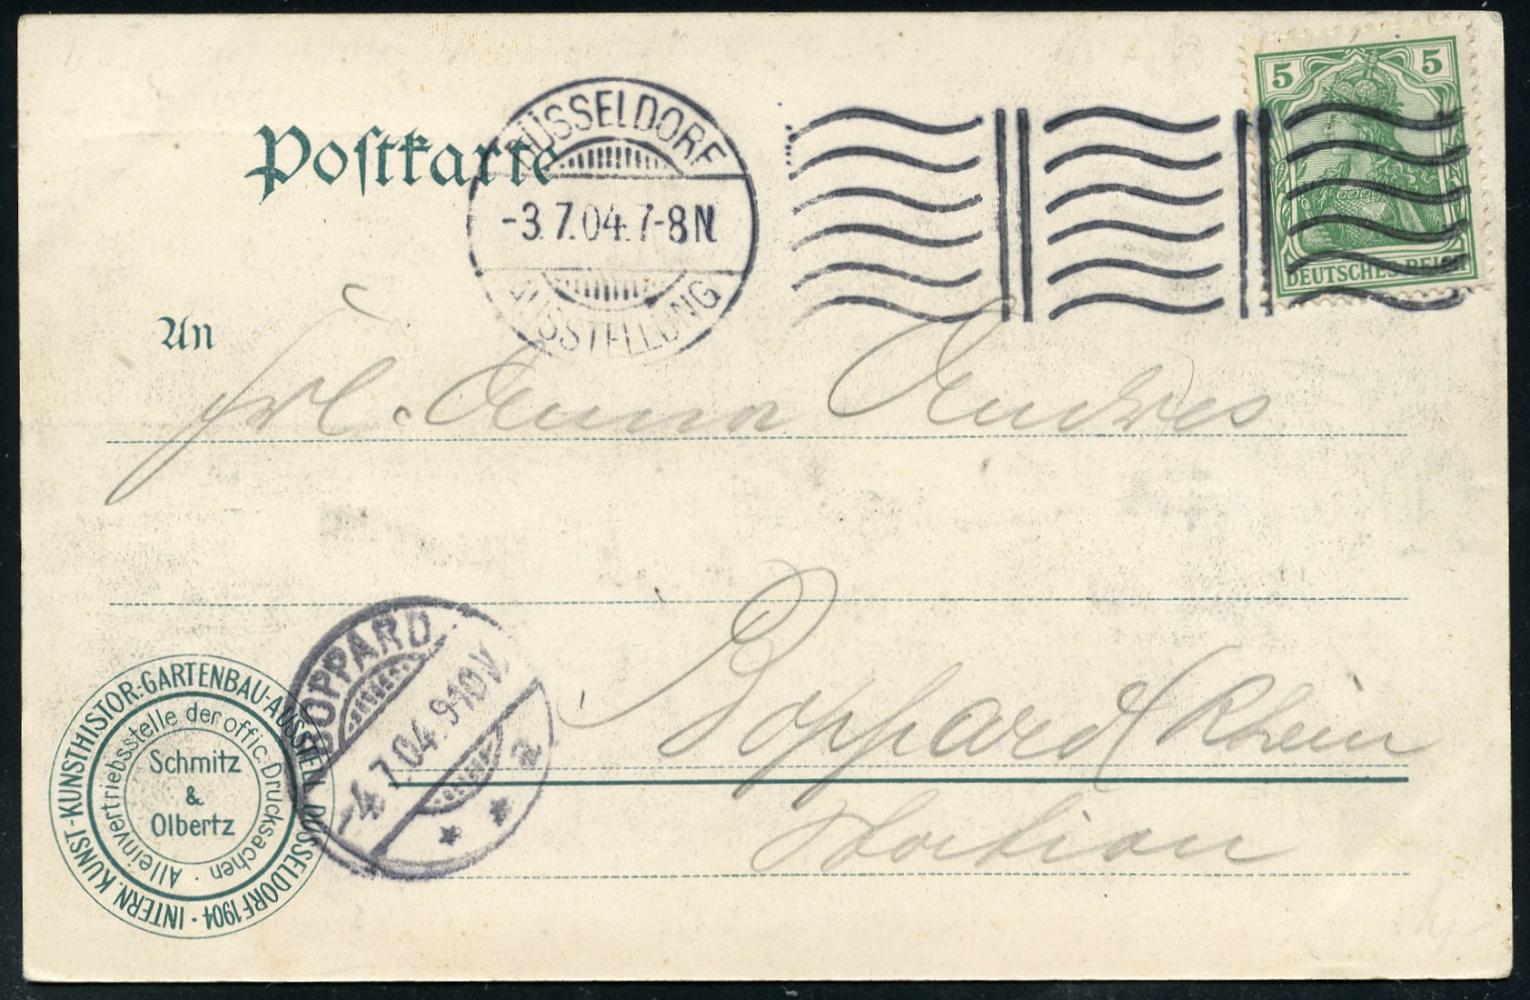 Postkarte
DÜSSELDORF
-3.7.04.7-8N.
AUSSTELLUNG
5 5
DEUTSCHES REICH
An
Frl. Anna Andres
Boppard / Rhein
Station
BOPPARD
-4.7.04.9-10V.
* * a
INTERN. KUNST-KUNSTHISTOR.-GARTENBAU-AUSSTELL. DÜSSELDORF 1904 ·
Alleinvertriebsstelle der offic. Drucksachen ·
Schmitz
&
Olbertz